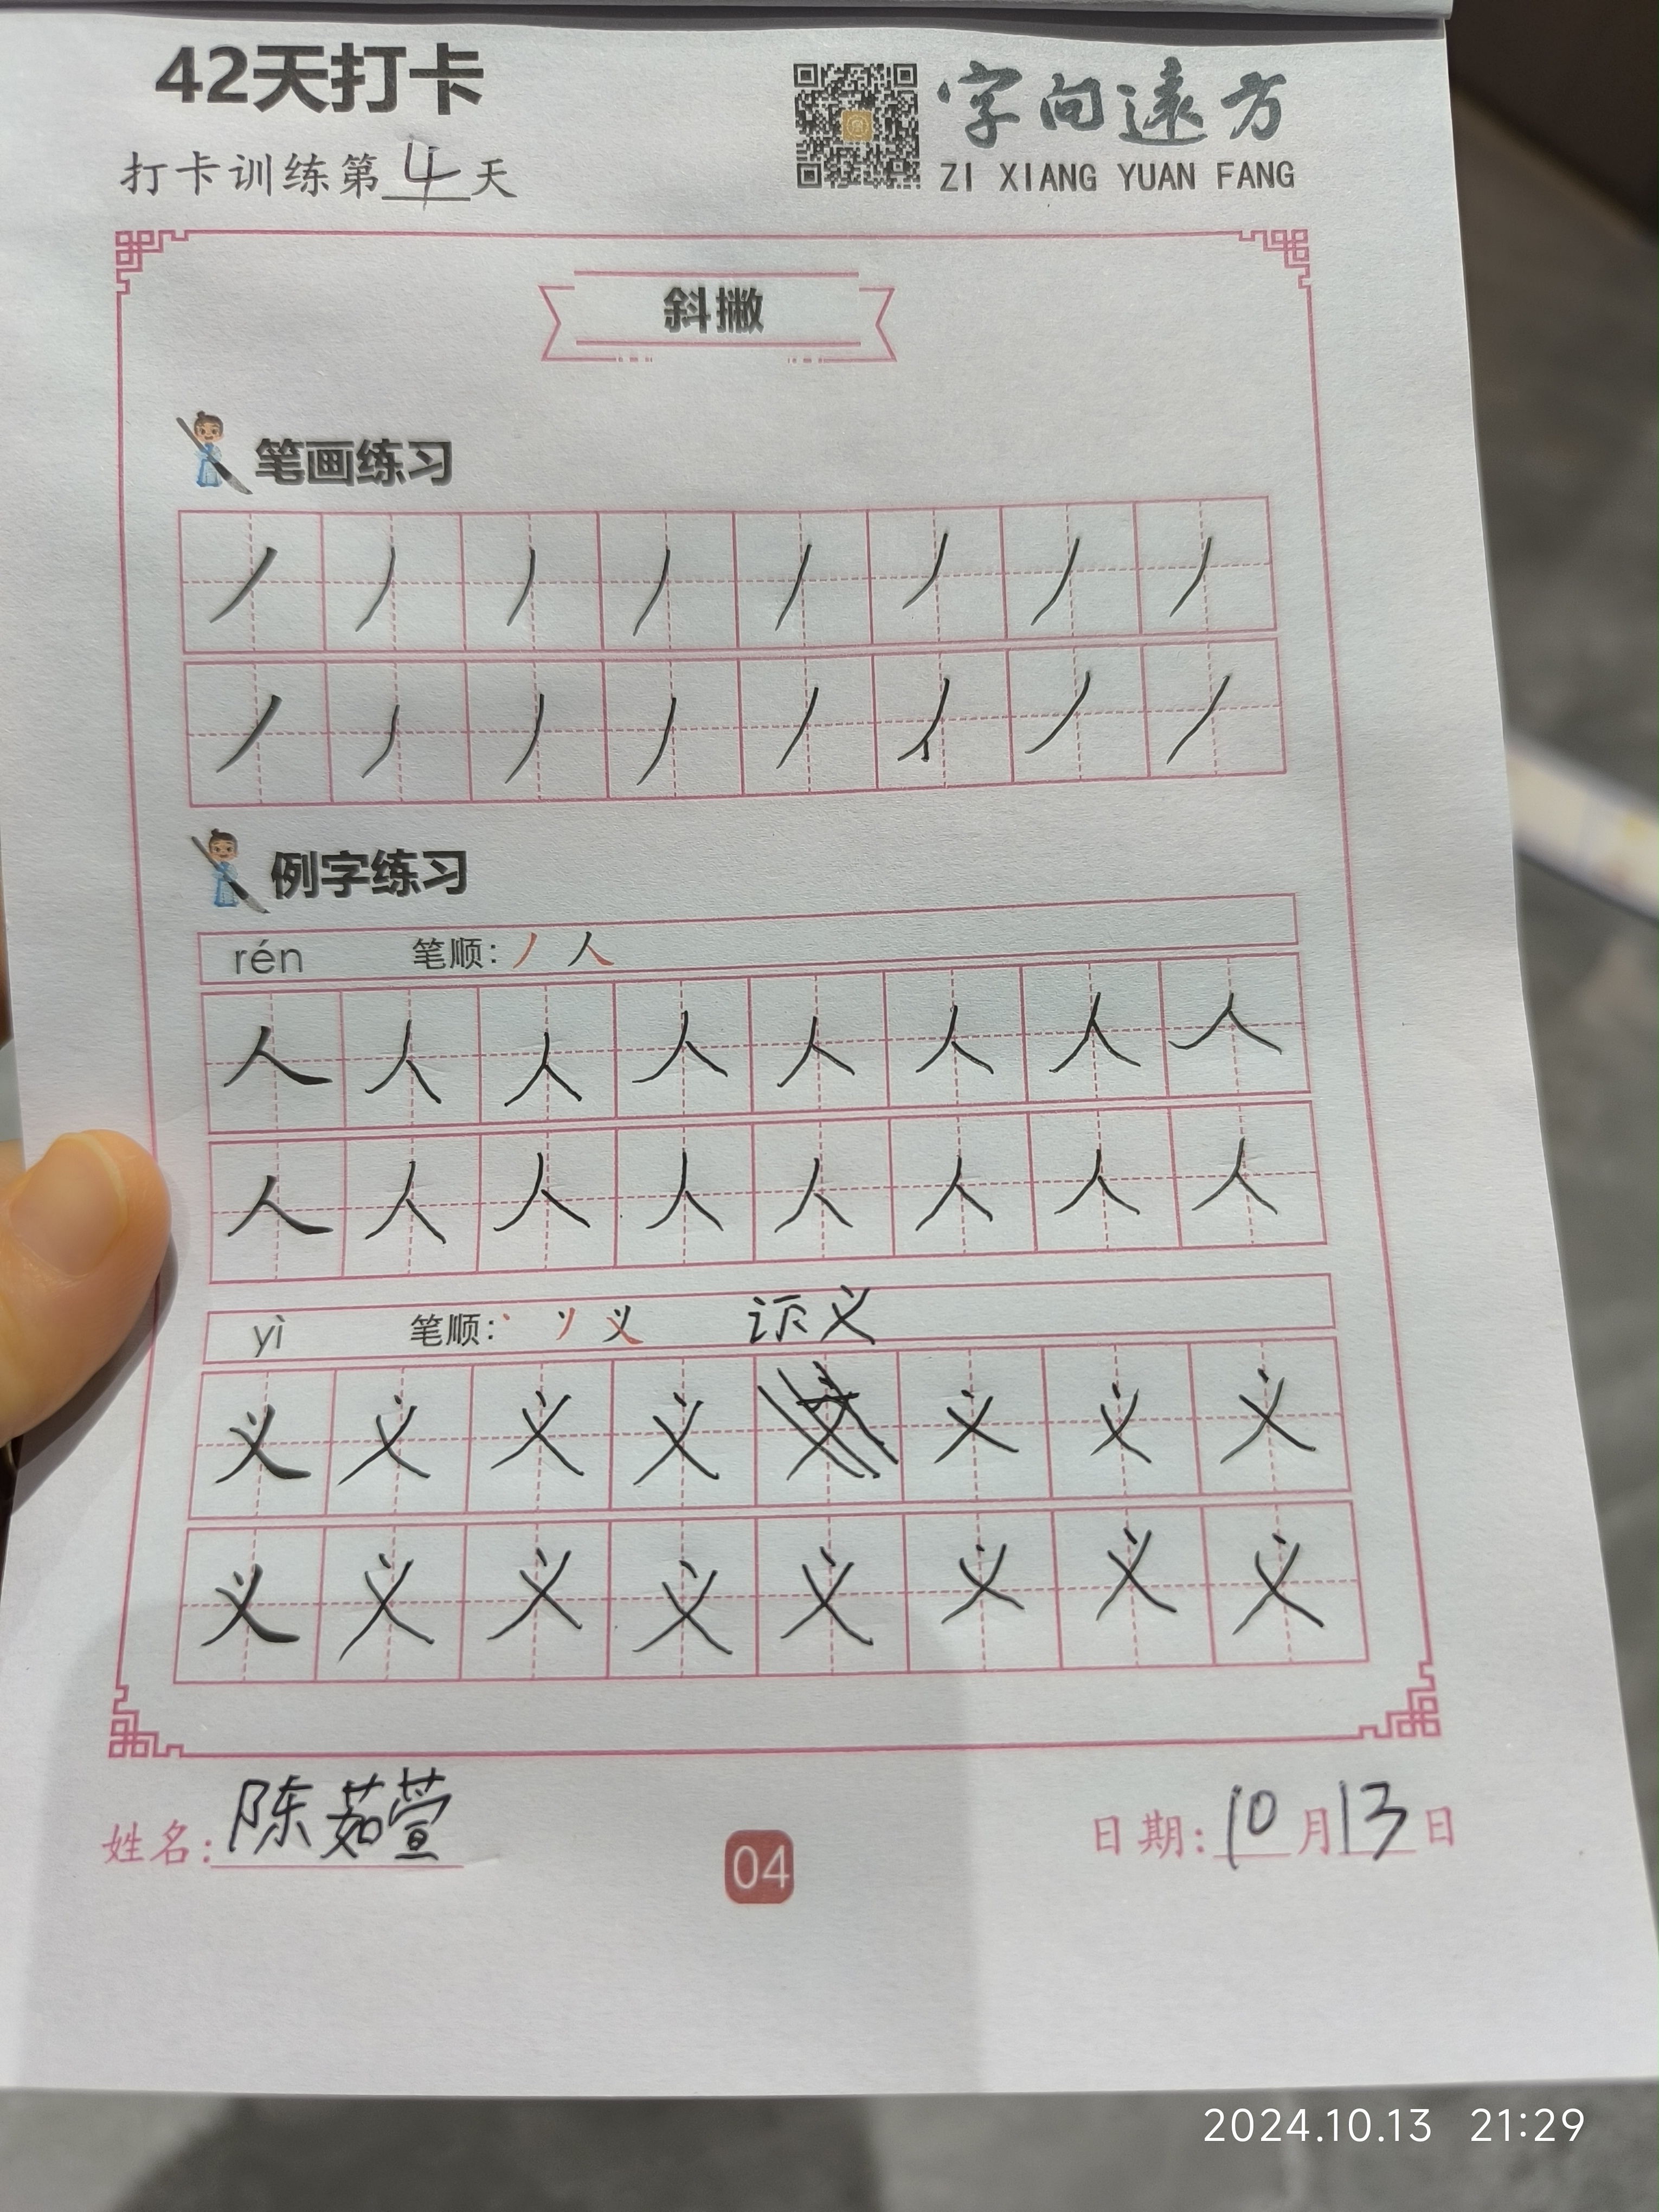 42天打卡
字向遠方
打卡训练第4天
ZI XIANG YUAN FANG
斜撇
笔画练习
丿丿丿丿丿丿丿丿
丿丿丿丿丿丿丿丿
例字练习
rén 笔顺:丿人
人人人人人人人人
人人人人人人人人
yì 笔顺:丶 义
义义义义义义义
义义义义义义义义
姓名:陈茹萱
04
日期:10月13日
2024.10.13 21:29